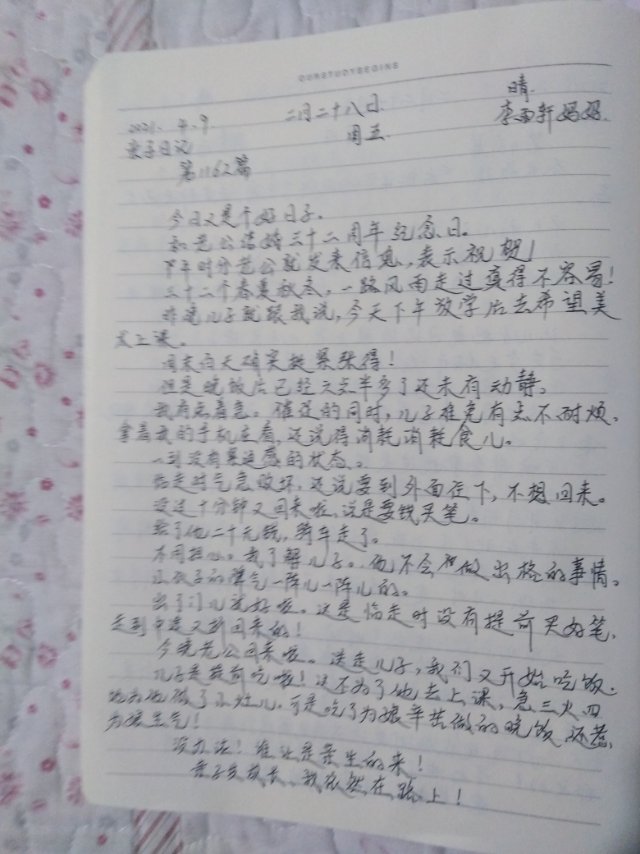 OURSTUDYBEGINS
晴.
2021. 4. 9 二月二十八日 李雨轩妈妈.
亲子日记 周五.
第1162篇
今日又是个好日子。
和老公结婚三十二周年纪念日。
下午时分老公就发来信息,表示祝贺!
三十二个春夏秋冬,一路风雨走过变得不容易!
昨晚儿子就跟我说,今天下午放学后去希望美
术上课。
周末白天确实挺累张得!
但是晚饭后已经六点半多了还未有动静。
我有点着急。催促的同时,儿子难免有点不耐烦。
拿着我的手机在看,还说得消耗消耗食儿。
一副没有紧迫感的状态。
临走时气急败坏,还说要到外面住下,不想回来。
没过十分钟又回来啦,说是要钱买笔。
给了他二十元钱,骑车走了。
不用担心。我了解儿子。他不会做出格的事情。
这孩子的脾气一阵儿一阵儿的。
出了门儿就好啦。这是临走时没有提前买好笔,
走到中途又折回来的!
今晚老公回来啦。送走儿子,我们又开始吃饭.
儿子是提前吃啦!还不为了他去上课,急三火四
地为他做了小灶儿,可是吃了为娘辛苦做的晚饭还惹
为娘生气!
没办法!谁让是亲生的来!
亲子成长、我依然在路上!